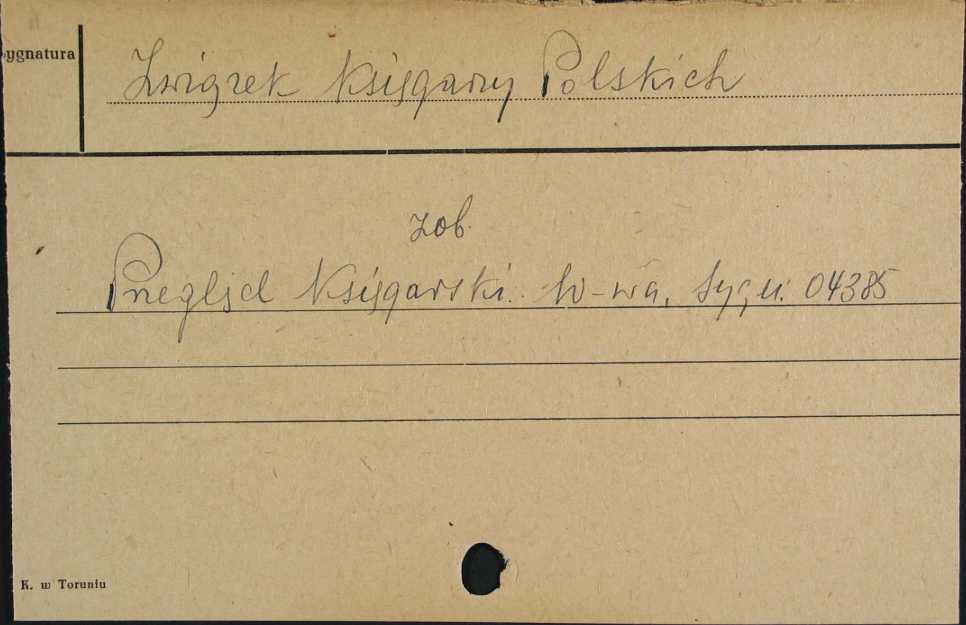 ygnatura
Związek Księgarzy Polskich
zob.
Przegląd Księgarski. W-wa, Sygn. 04385
K. w Toruniu